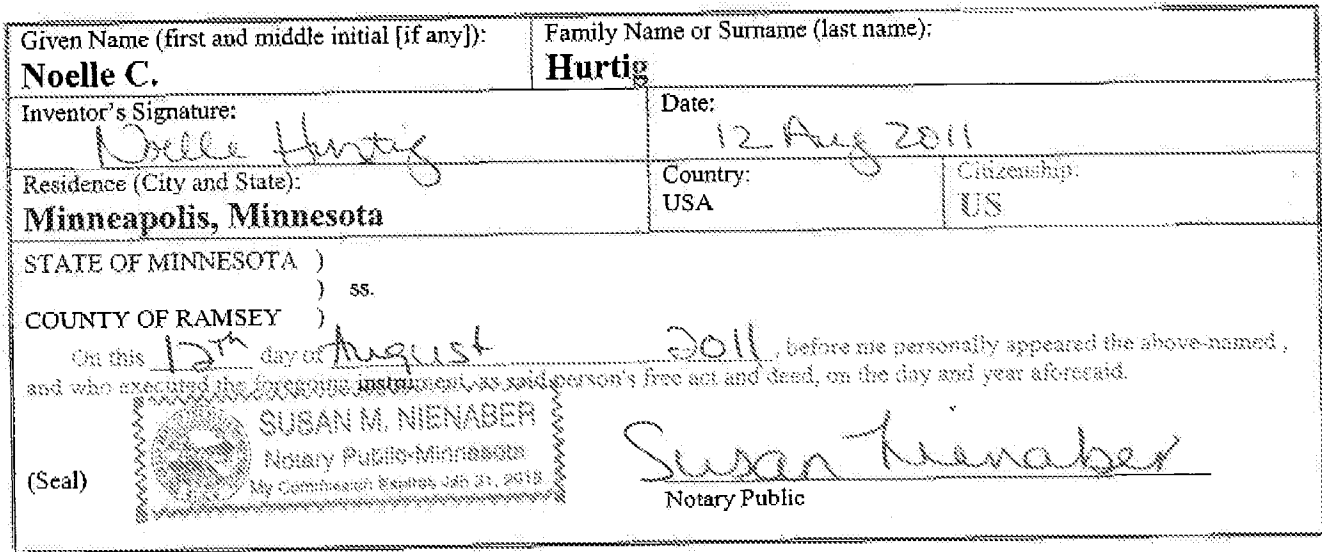 Given Name (first and middle initial [if any]):
Noelle C.
Family Name or Surname (last name):
Hurtig
Inventor's Signature:
Noelle Hurtig
Date:
12 Aug 2011
Residence (City and State):
Minneapolis, Minnesota
Country:
USA
Citizenship:
US
STATE OF MINNESOTA )
) ss.
COUNTY OF RAMSEY )
On this 12th day of August 2011, before me personally appeared the above-named ,
and who executed the foregoing instrument, as said person's free act and deed, on the day and year aforesaid.
SUSAN M. NIENABER
Notary Public-Minnesota
My Commission Expires Jan 31,
(Seal)
Susan Nienaber
Notary Public